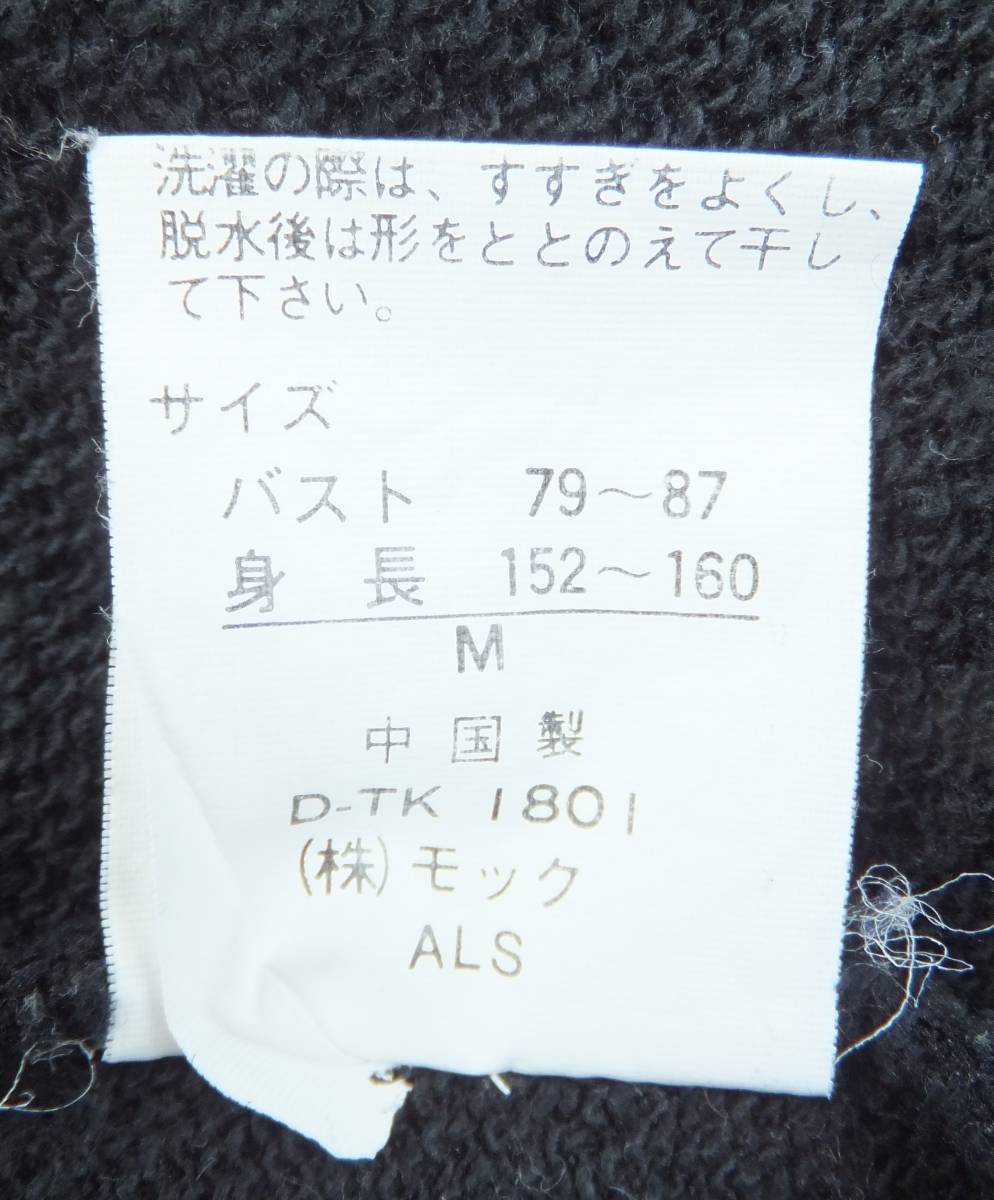 洗濯の際は、すすぎをよくし、
脱水後は形をととのえて干し
て下さい。
サイズ
バスト 79～87
身長 152～160
M
中国製
D-TK 1801
(株)モック
ALS